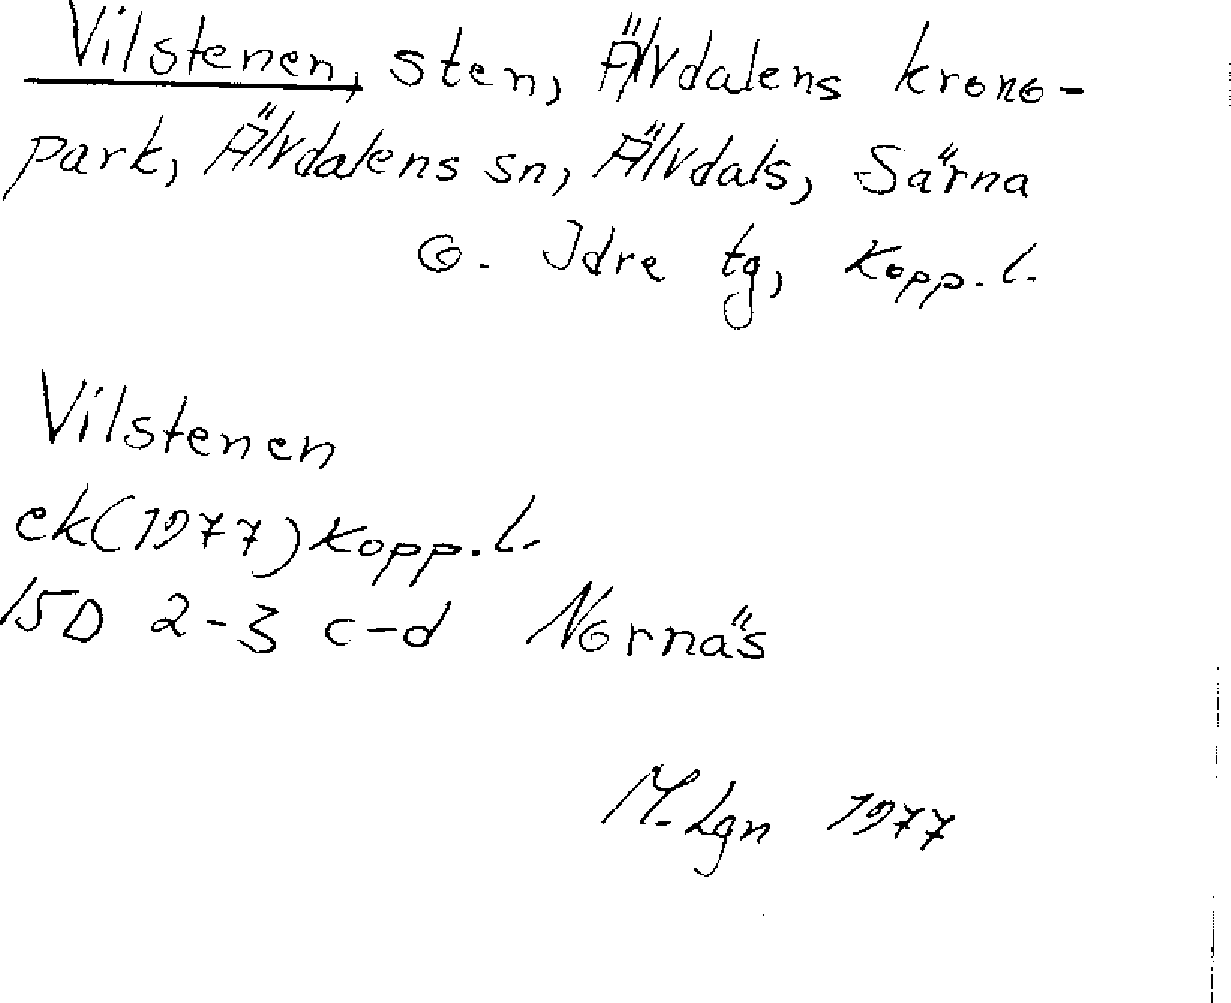 Vilstenen, sten, Älvdalens krono-
park, Älvdalens sn, Älvdals, Särna
o. Idre tg, Kopp.l.
Vilstenen
ek(1977)Kopp.l.
15D 2-3 c-d Nornäs
M.Lgn 1977